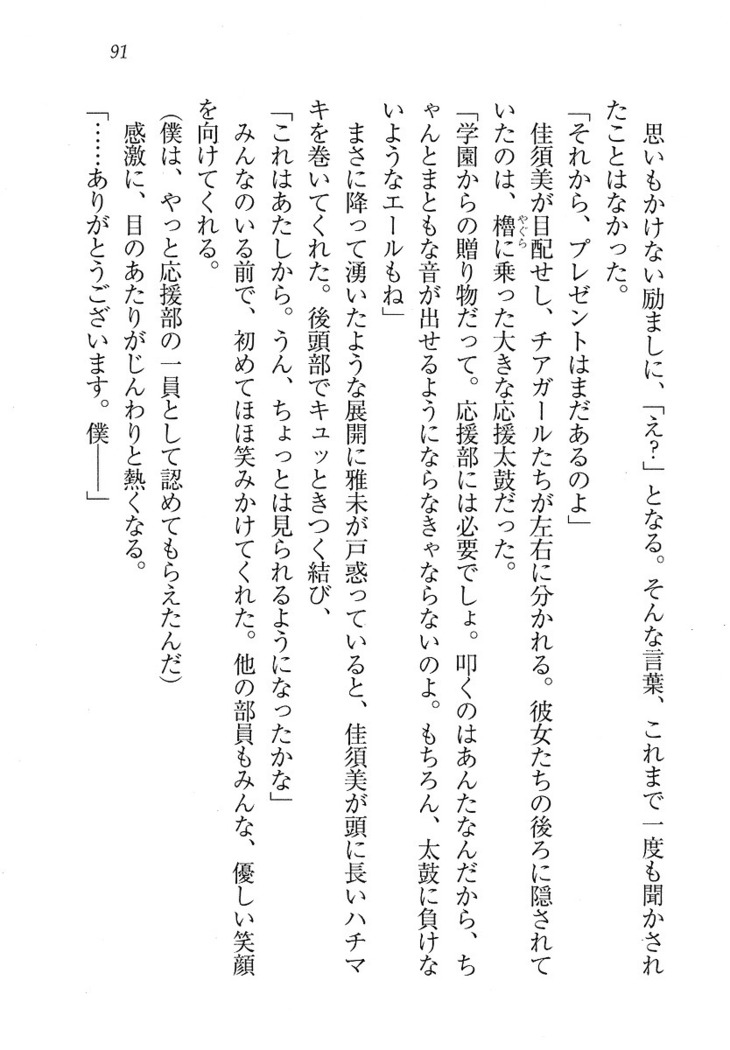 91
思いもかけない励ましに、「え？」となる。そんな言葉、これまで一度も聞かされ
たことはなかった。
「それから、プレゼントはまだあるのよ」
佳須美が目配せし、チアガールたちが左右に分かれる。彼女たちの後ろに隠されて
いたのは、櫓に乗った大きな応援太鼓だった。
やぐら
「学園からの贈り物だって。応援部には必要でしょ。叩くのはあんたなんだから、ち
ゃんとまともな音が出せるようにならなきゃならないのよ。もちろん、太鼓に負けな
いようなエールもね」
まさに降って湧いたような展開に雅未が戸惑っていると、佳須美が頭に長いハチマ
キを巻いてくれた。後頭部でキュッときつく結び、
「これはあたしから。うん、ちょっとは見られるようになったかな」
みんなのいる前で、初めてほほ笑みかけてくれた。他の部員もみんな、優しい笑顔
を向けてくれる。
（僕は、やっと応援部の一員として認めてもらえたんだ）
感激に、目のあたりがじんわりと熱くなる。
「……ありがとうございます。僕――」